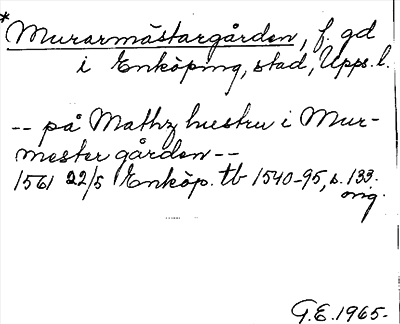 *Murarmästargården, f. gd
i Enköping, stad, Upps. l.
-- på Mathz hustru i Mur-
mester gården --
1561 22/5 Enköp. tb 1540-95, s. 133.
orig.
G.E. 1965.